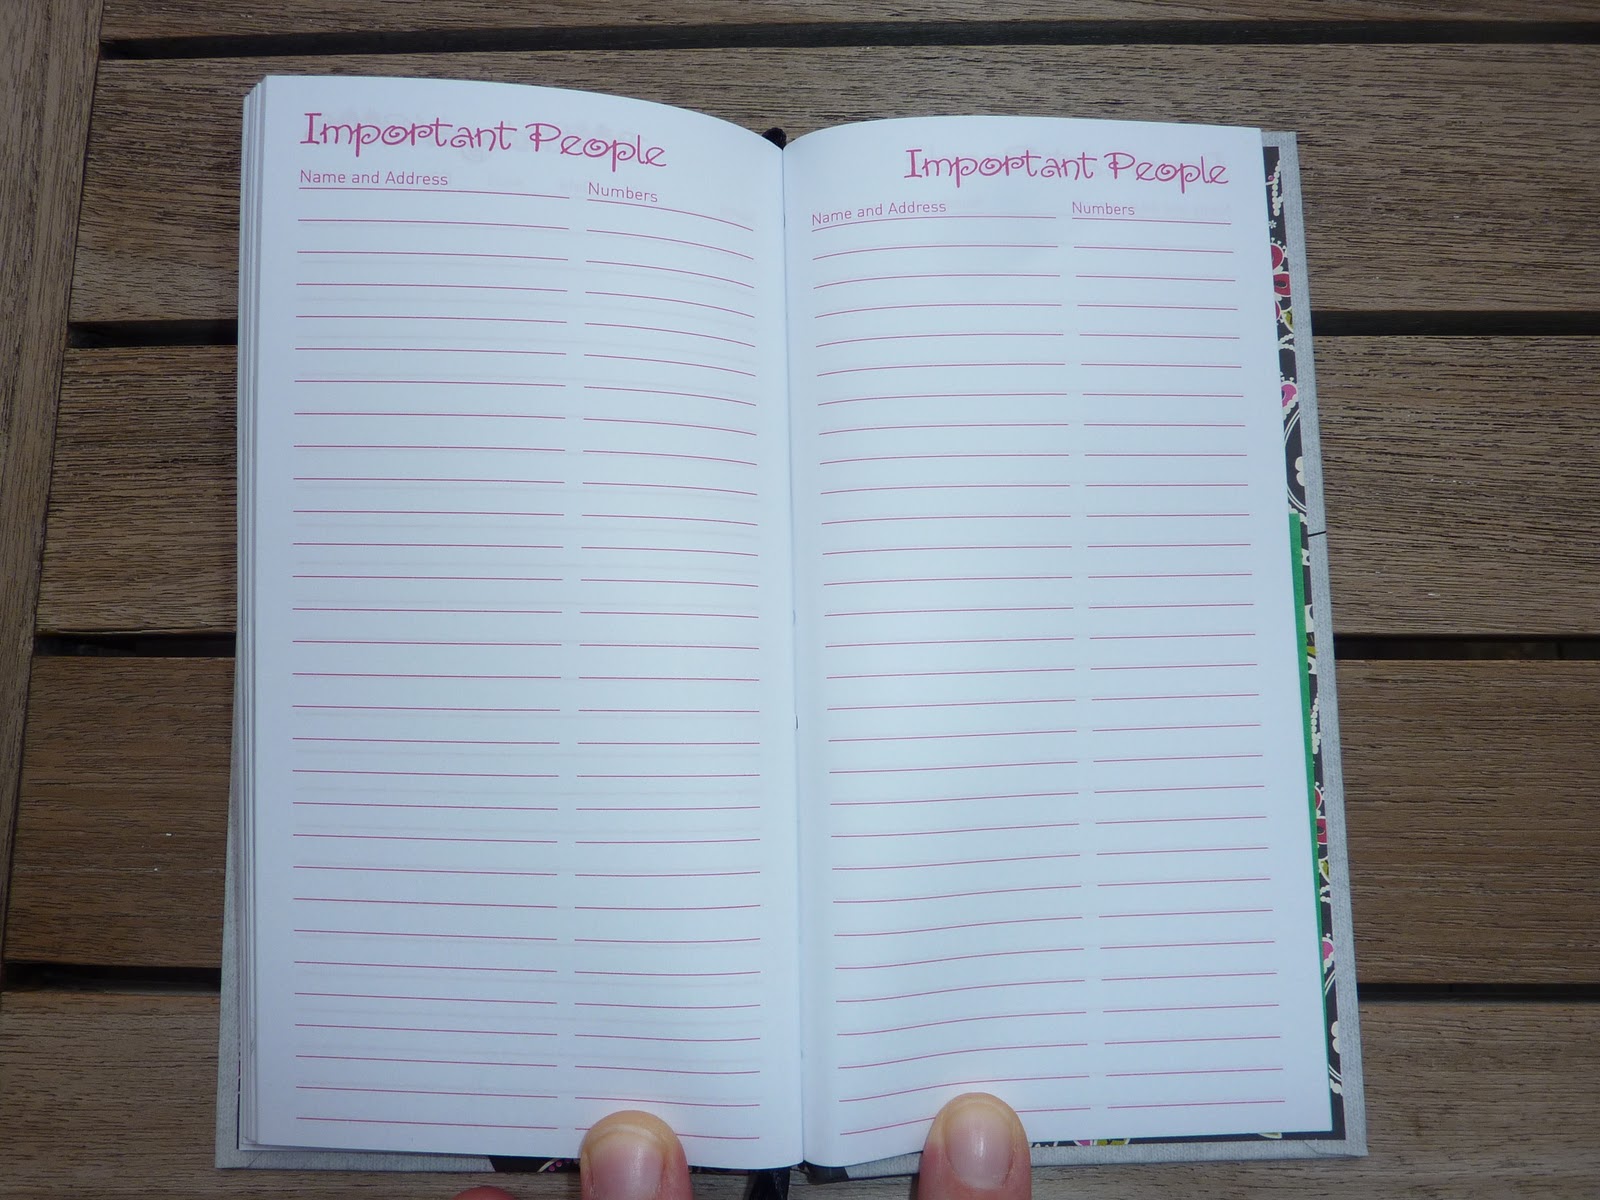 Important People
Name and Address Numbers
Important People
Name and Address Numbers